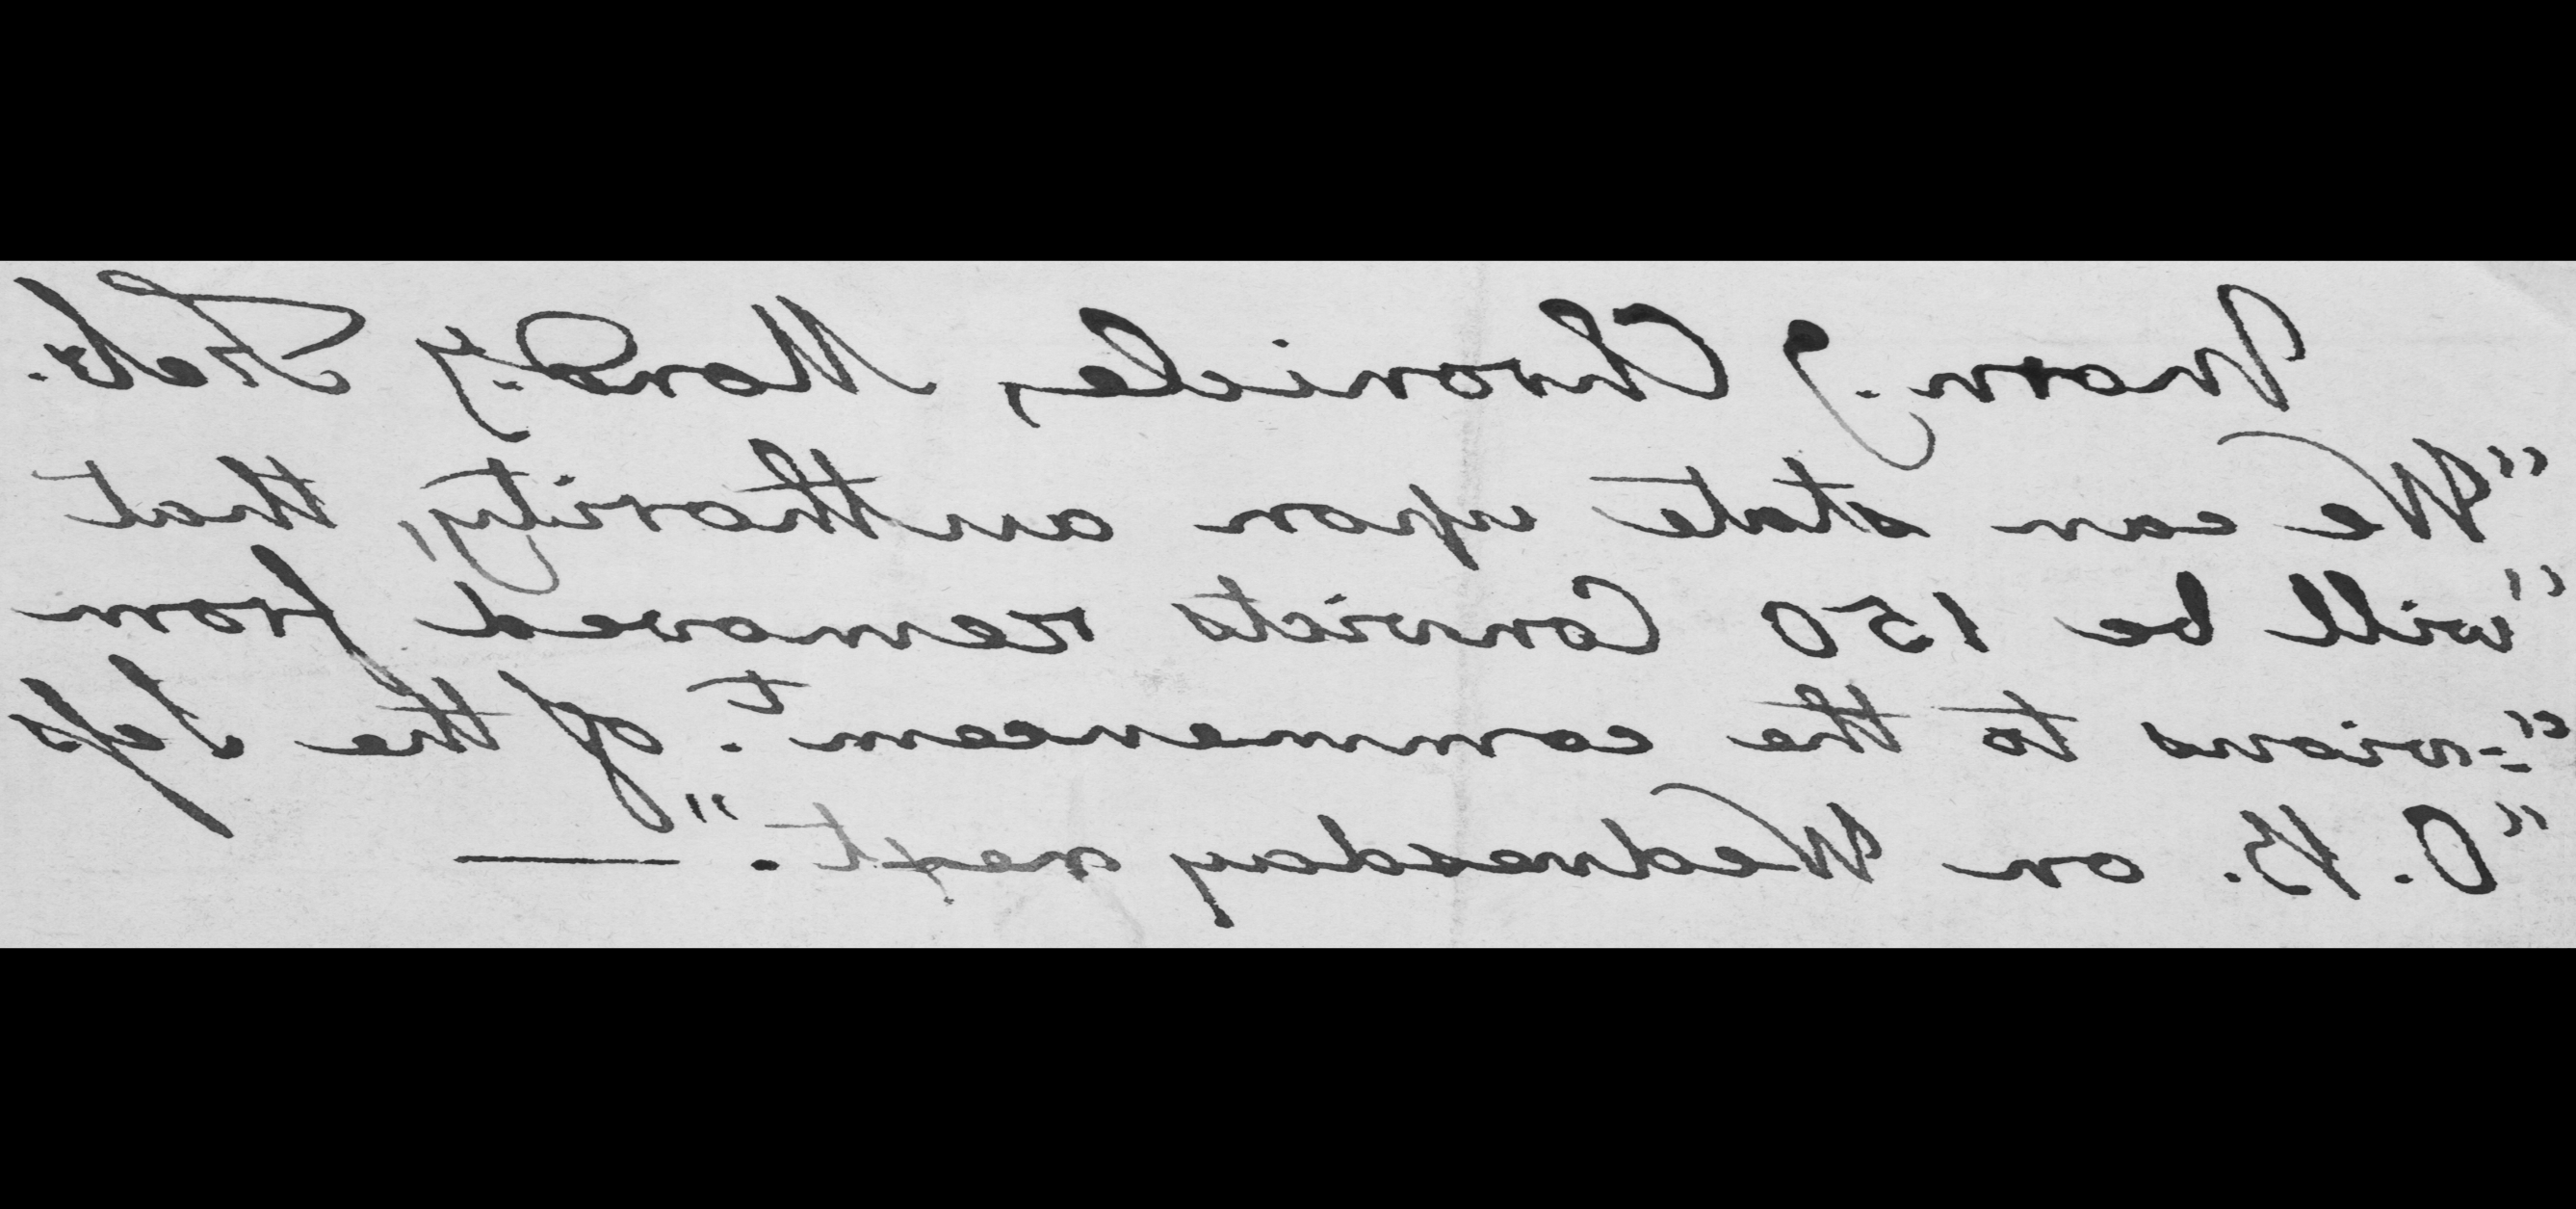 Morn.g Chronicle, Mond.y Feb.
"We can state upon authority, that
"will be 150 Convicts removed from
"=vious to the commencem.t of the Sess
"O. B. on Wednesday next." —